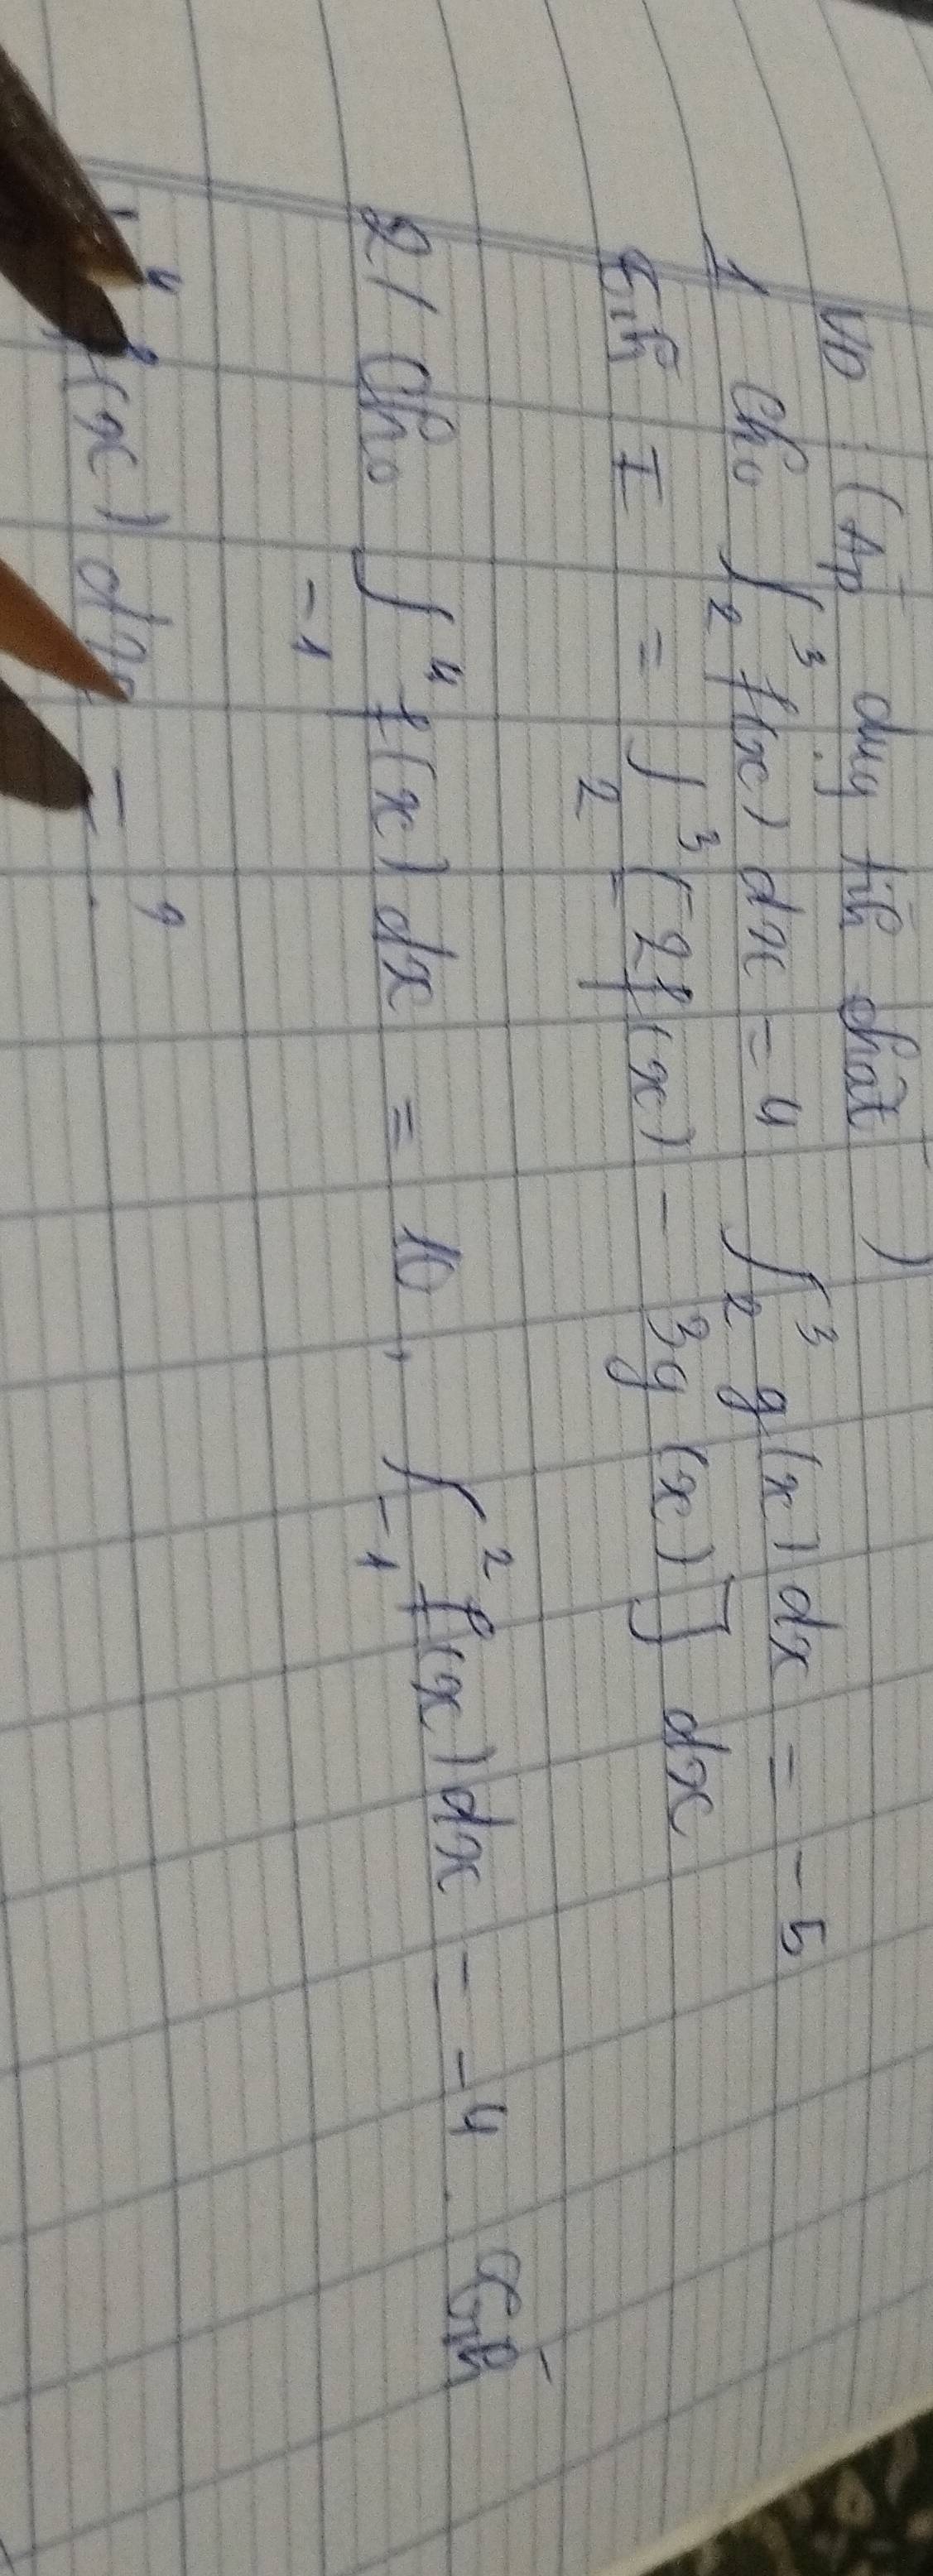 VD : (Áp dụng tíh chất)
1 Cho ∫₂³ f(x) dx = 4 ∫₂³ g(x) dx = -5
Tíh I = ∫₂³ [2f(x) - 3g(x)] dx
2/ Cho ∫₋₁⁴ f(x) dx = 10, ∫₋₁² f(x) dx = -4. Tíh
⁴ f(x) dx = ?